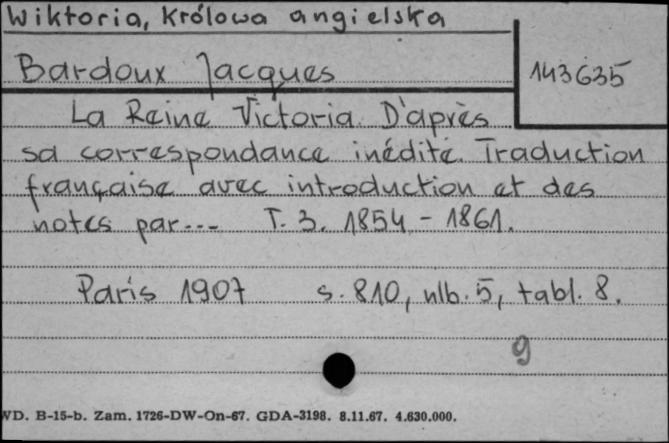 Wiktoria, Królowa angielska
Bardoux Jacques
143635
La Reine Victoria. D'après
sa correspondance inédite. Traduction
française avec introduction et des
notes par... T. 3. 1854 - 1861.
Paris 1907 s. 810, nlb. 5, tabl. 8.
9
WD. B-15-b. Zam. 1726-DW-On-67. GDA-3198. 8.11.67. 4.630.000.